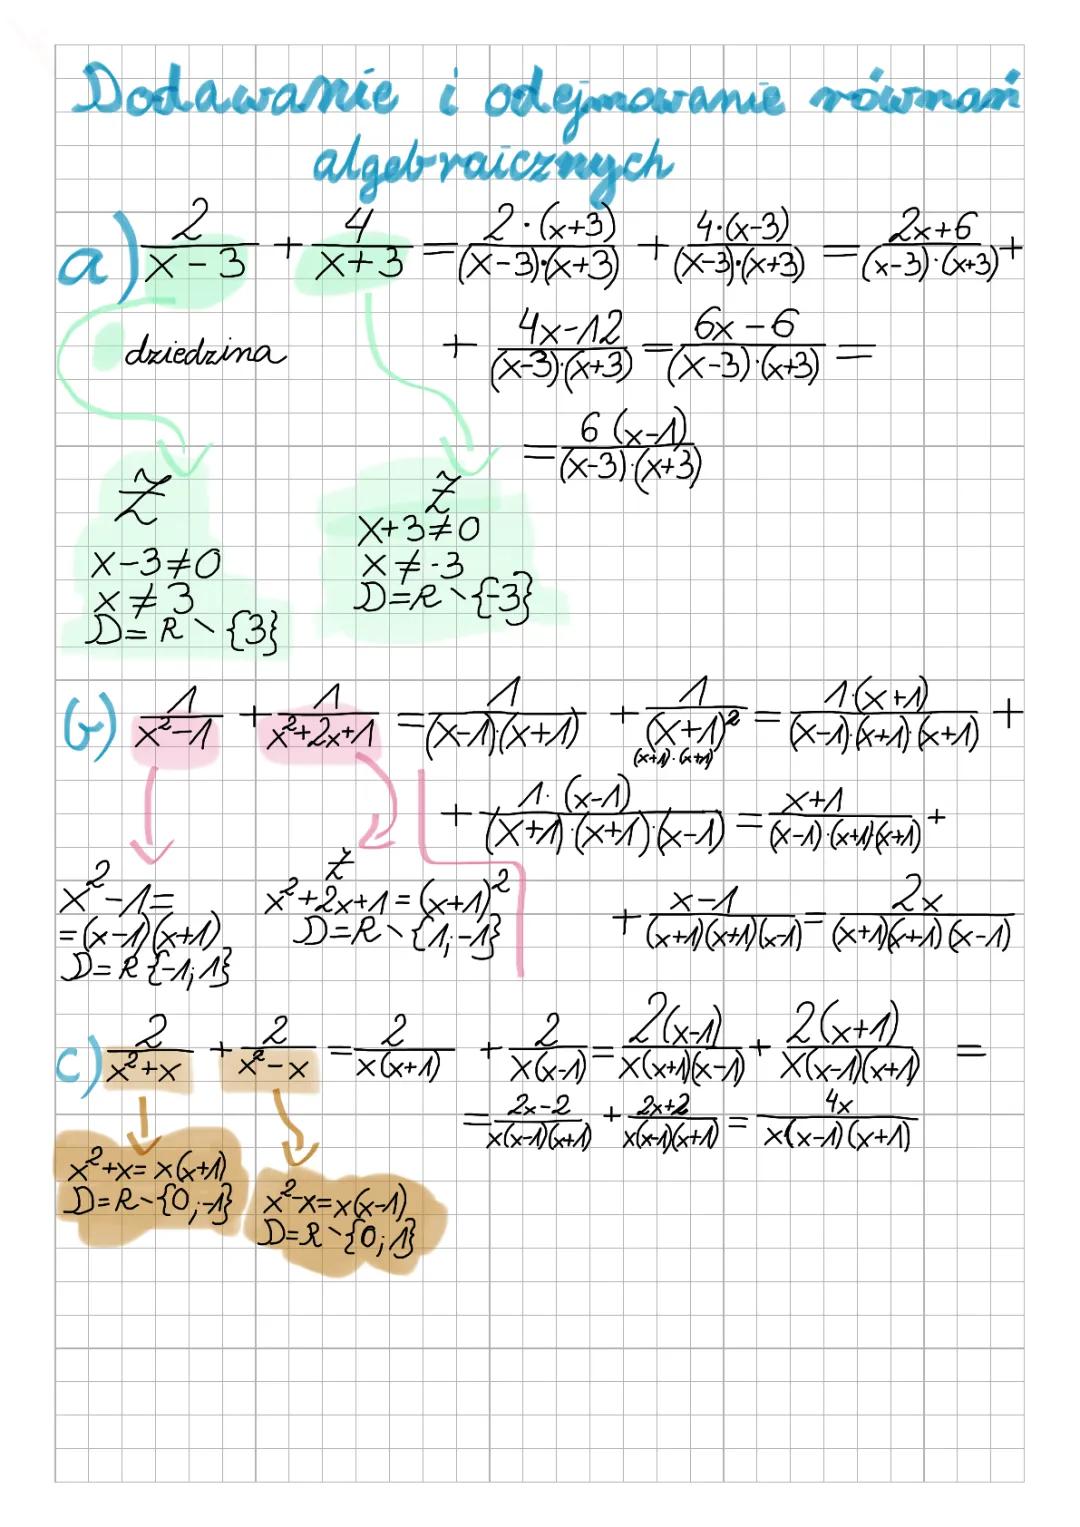 Dodawanie i odejmowanie równań
algebraicznych
a) 2/(x-3) + 4/(x+3) = 2·(x+3)/((x-3)·(x+3)) + 4·(x-3)/((x-3)·(x+3)) = 2x+6/((x-3)·(x+3)) +
dziedzina
+ 4x-12/((x-3)·(x+3)) = 6x-6/((x-3)·(x+3)) =
= 6(x-1)/((x-3)·(x+3))
Z̃
x-3≠0
x≠3
D=R\{3}
Z̃
x+3≠0
x≠-3
D=R\{-3}
b) 1/(x²-1) + 1/(x²+2x+1) = 1/((x-1)·(x+1)) + 1/(x+1)² = 1·(x+1)/((x-1)·(x+1)·(x+1)) +
(x+1)·(x+1)
+ 1·(x-1)/((x+1)·(x+1)·(x-1)) = x+1/((x-1)·(x+1)(x+1)) +
+ x-1/((x+1)(x+1)(x-1)) = 2x/((x+1)(x+1)(x-1))
x²-1=
=(x-1)(x+1)
D=R{-1;1}
Z
x²+2x+1=(x+1)²
D=R\{1;-1}
c) 2/(x²+x) + 2/(x²-x) = 2/(x(x+1)) + 2/(x(x-1)) = 2(x-1)/(x(x+1)(x-1)) + 2(x+1)/(x(x-1)(x+1)) =
= 2x-2/(x(x-1)(x+1)) + 2x+2/(x(x-1)(x+1)) = 4x/(x(x-1)(x+1))
x²+x=x(x+1)
D=R\{0;-1}
x²-x=x(x-1)
D=R\{0;1}